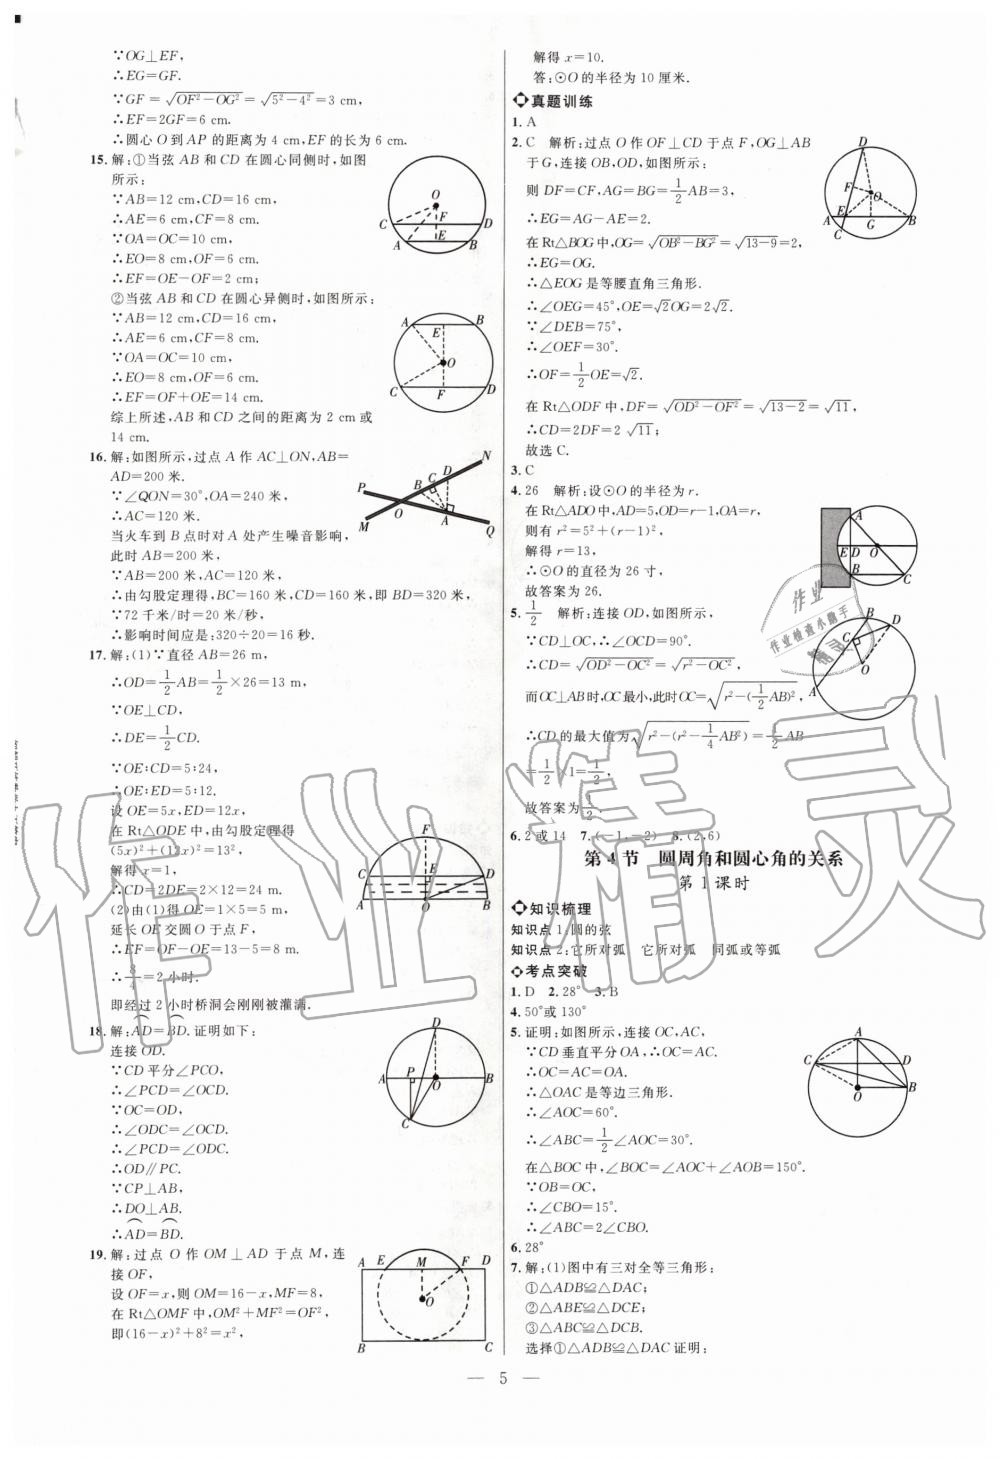 ∵OG⊥EF,
∴EG=GF.
∵GF=√(OF²-OG²)=√(5²-4²)=3 cm,
∴EF=2GF=6 cm.
∴圆心 O 到 AP 的距离为 4 cm,EF 的长为 6 cm.
15.解:①当弦 AB 和 CD 在圆心同侧时,如图
所示:
∵AB=12 cm,CD=16 cm,
∴AE=6 cm,CF=8 cm.
∵OA=OC=10 cm,
∴EO=8 cm,OF=6 cm.
∴EF=OE-OF=2 cm;
②当弦 AB 和 CD 在圆心异侧时,如图所示:
∵AB=12 cm,CD=16 cm,
∴AE=6 cm,CF=8 cm.
∵OA=OC=10 cm,
∴EO=8 cm,OF=6 cm.
∴EF=OF+OE=14 cm.
综上所述,AB 和 CD 之间的距离为 2 cm 或
14 cm.
16.解:如图所示,过点 A 作 AC⊥ON,AB=
AD=200 米.
∵∠QON=30°,OA=240 米,
∴AC=120 米.
当火车到 B 点时对 A 处产生噪音影响,
此时 AB=200 米,
∵AB=200 米,AC=120 米,
∴由勾股定理得,BC=160 米,CD=160 米,即 BD=320 米,
∵72 千米/时=20 米/秒,
∴影响时间应是:320÷20=16 秒.
17.解:(1)∵直径 AB=26 m,
∴OD=1/2AB=1/2×26=13 m,
∵OE⊥CD,
∴DE=1/2CD.
∵OE:CD=5:24,
∴OE:ED=5:12.
设 OE=5x,ED=12x,
在 Rt△ODE 中,由勾股定理得
(5x)²+(12x)²=13²,
解得 x=1,
∴CD=2DE=2×12=24 m;
(2)由(1)得 OE=1×5=5 m,
延长 OE 交圆 O 于点 F,
∴EF=OF-OE=13-5=8 m.
∴8/4=2 小时.
即经过 2 小时桥洞会刚刚被灌满.
18.解:A͡D=B͡D.证明如下:
连接 OD.
∵CD 平分∠PCO,
∴∠PCD=∠OCD.
∵OC=OD,
∴∠ODC=∠OCD.
∴∠PCD=∠ODC.
∴OD∥PC.
∵CP⊥AB,
∴DO⊥AB.
∴A͡D=B͡D.
19.解:过点 O 作 OM⊥AD 于点 M,连
接 OF,
设 OF=x,则 OM=16-x,MF=8,
在 Rt△OMF 中,OM²+MF²=OF²,
即(16-x)²+8²=x²,
解得 x=10.
答:⊙O 的半径为 10 厘米.
真题训练
1.A
2.C 解析:过点 O 作 OF⊥CD 于点 F,OG⊥AB
于 G,连接 OB,OD,如图所示:
则 DF=CF,AG=BG=1/2AB=3,
∴EG=AG-AE=2.
在 Rt△BOG 中,OG=√(OB²-BG²)=√(13-9)=2,
∴EG=OG.
∴△EOG 是等腰直角三角形.
∴∠OEG=45°,OE=√2OG=2√2.
∵∠DEB=75°,
∴∠OEF=30°.
∴OF=1/2OE=√2.
在 Rt△ODF 中,DF=√(OD²-OF²)=√(13-2)=√11,
∴CD=2DF=2√11;
故选 C.
3.C
4.26 解析:设⊙O 的半径为 r.
在 Rt△ADO 中,AD=5,OD=r-1,OA=r,
则有 r²=5²+(r-1)²,
解得 r=13,
∴⊙O 的直径为 26 寸,
故答案为 26.
5.1/2 解析:连接 OD,如图所示,
∵CD⊥OC,∴∠OCD=90°.
∴CD=√(OD²-OC²)=√(r²-OC²),
而OC⊥AB时,OC最小,此时OC=√(r²-(1/2AB)²),
∴CD的最大值为√(r²-(r²-1/4AB²))=1/2AB
=1/2×1=1/2,
故答案为1/2.
6.2 或 14 7.(-1,-2) 8.(2,6)
第 4 节 圆周角和圆心角的关系
第 1 课时
知识梳理
知识点 1:圆的弦
知识点 2:它所对弧 它所对弧 同弧或等弧
考点突破
1.D 2.28° 3.B
4.50°或 130°
5.证明:如图所示,连接 OC,AC,
∵CD 垂直平分 OA,∴OC=AC.
∴OC=AC=OA.
∴△OAC 是等边三角形.
∴∠AOC=60°.
∴∠ABC=1/2∠AOC=30°.
在△BOC 中,∠BOC=∠AOC+∠AOB=150°.
∵OB=OC,
∴∠CBO=15°.
∴∠ABC=2∠CBO.
6.28°
7.解:(1)图中有三对全等三角形:
①△ADB≌△DAC;
②△ABE≌△DCE;
③△ABC≌△DCB.
选择①△ADB≌△DAC 证明:
— 5 —
作业精灵
作业
作业检查小助手
精灵